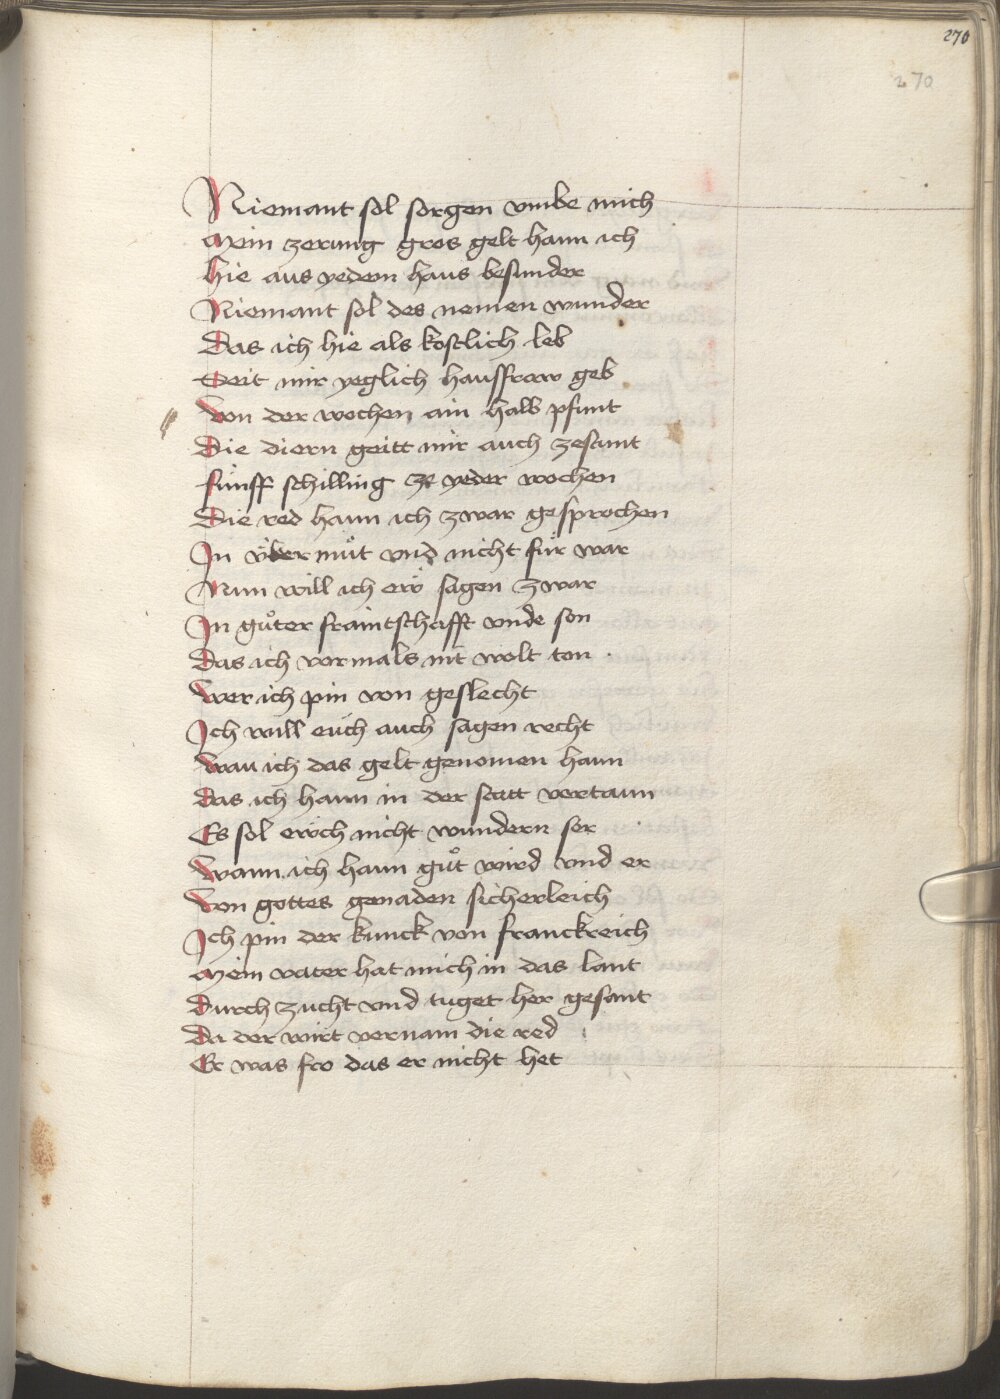 270
270
Niemant sol sorgen vmbe mich
Mein zerung gros gelt hann ich
hie aus yedem haus besunder
Niemant sol des nemen wunder
Das ich hie als kostlich leb
Seit mir yeglich hausfraw geb
Von der wochen ain halb pfunt
Die diern geitt mir auch zesamt
fünff schilling ze yeder wochen
Die red hann ich zwar gesprochen
In v̈ber mu̇t vnd nicht für war
Nun will ich ew sagen zwar
In gůter fraintschafft vnde son
Das ich vormals nit wolt ton
wer ich pin von geslecht
Ich will euch auch sagen recht
Wau ich das gelt genomen hann
Das ich hann in der statt vertann
Es sol ewch nicht wundern ser
Wann ich hann gůt wird vnd er
Von gottes genaden sicherleich
Ich pin der kunck von franckreich
Mein vater hat mich in das lant
Durch zucht vnd tuget her gesant
Da der wirt vernam die red
Er was fro das er nicht het